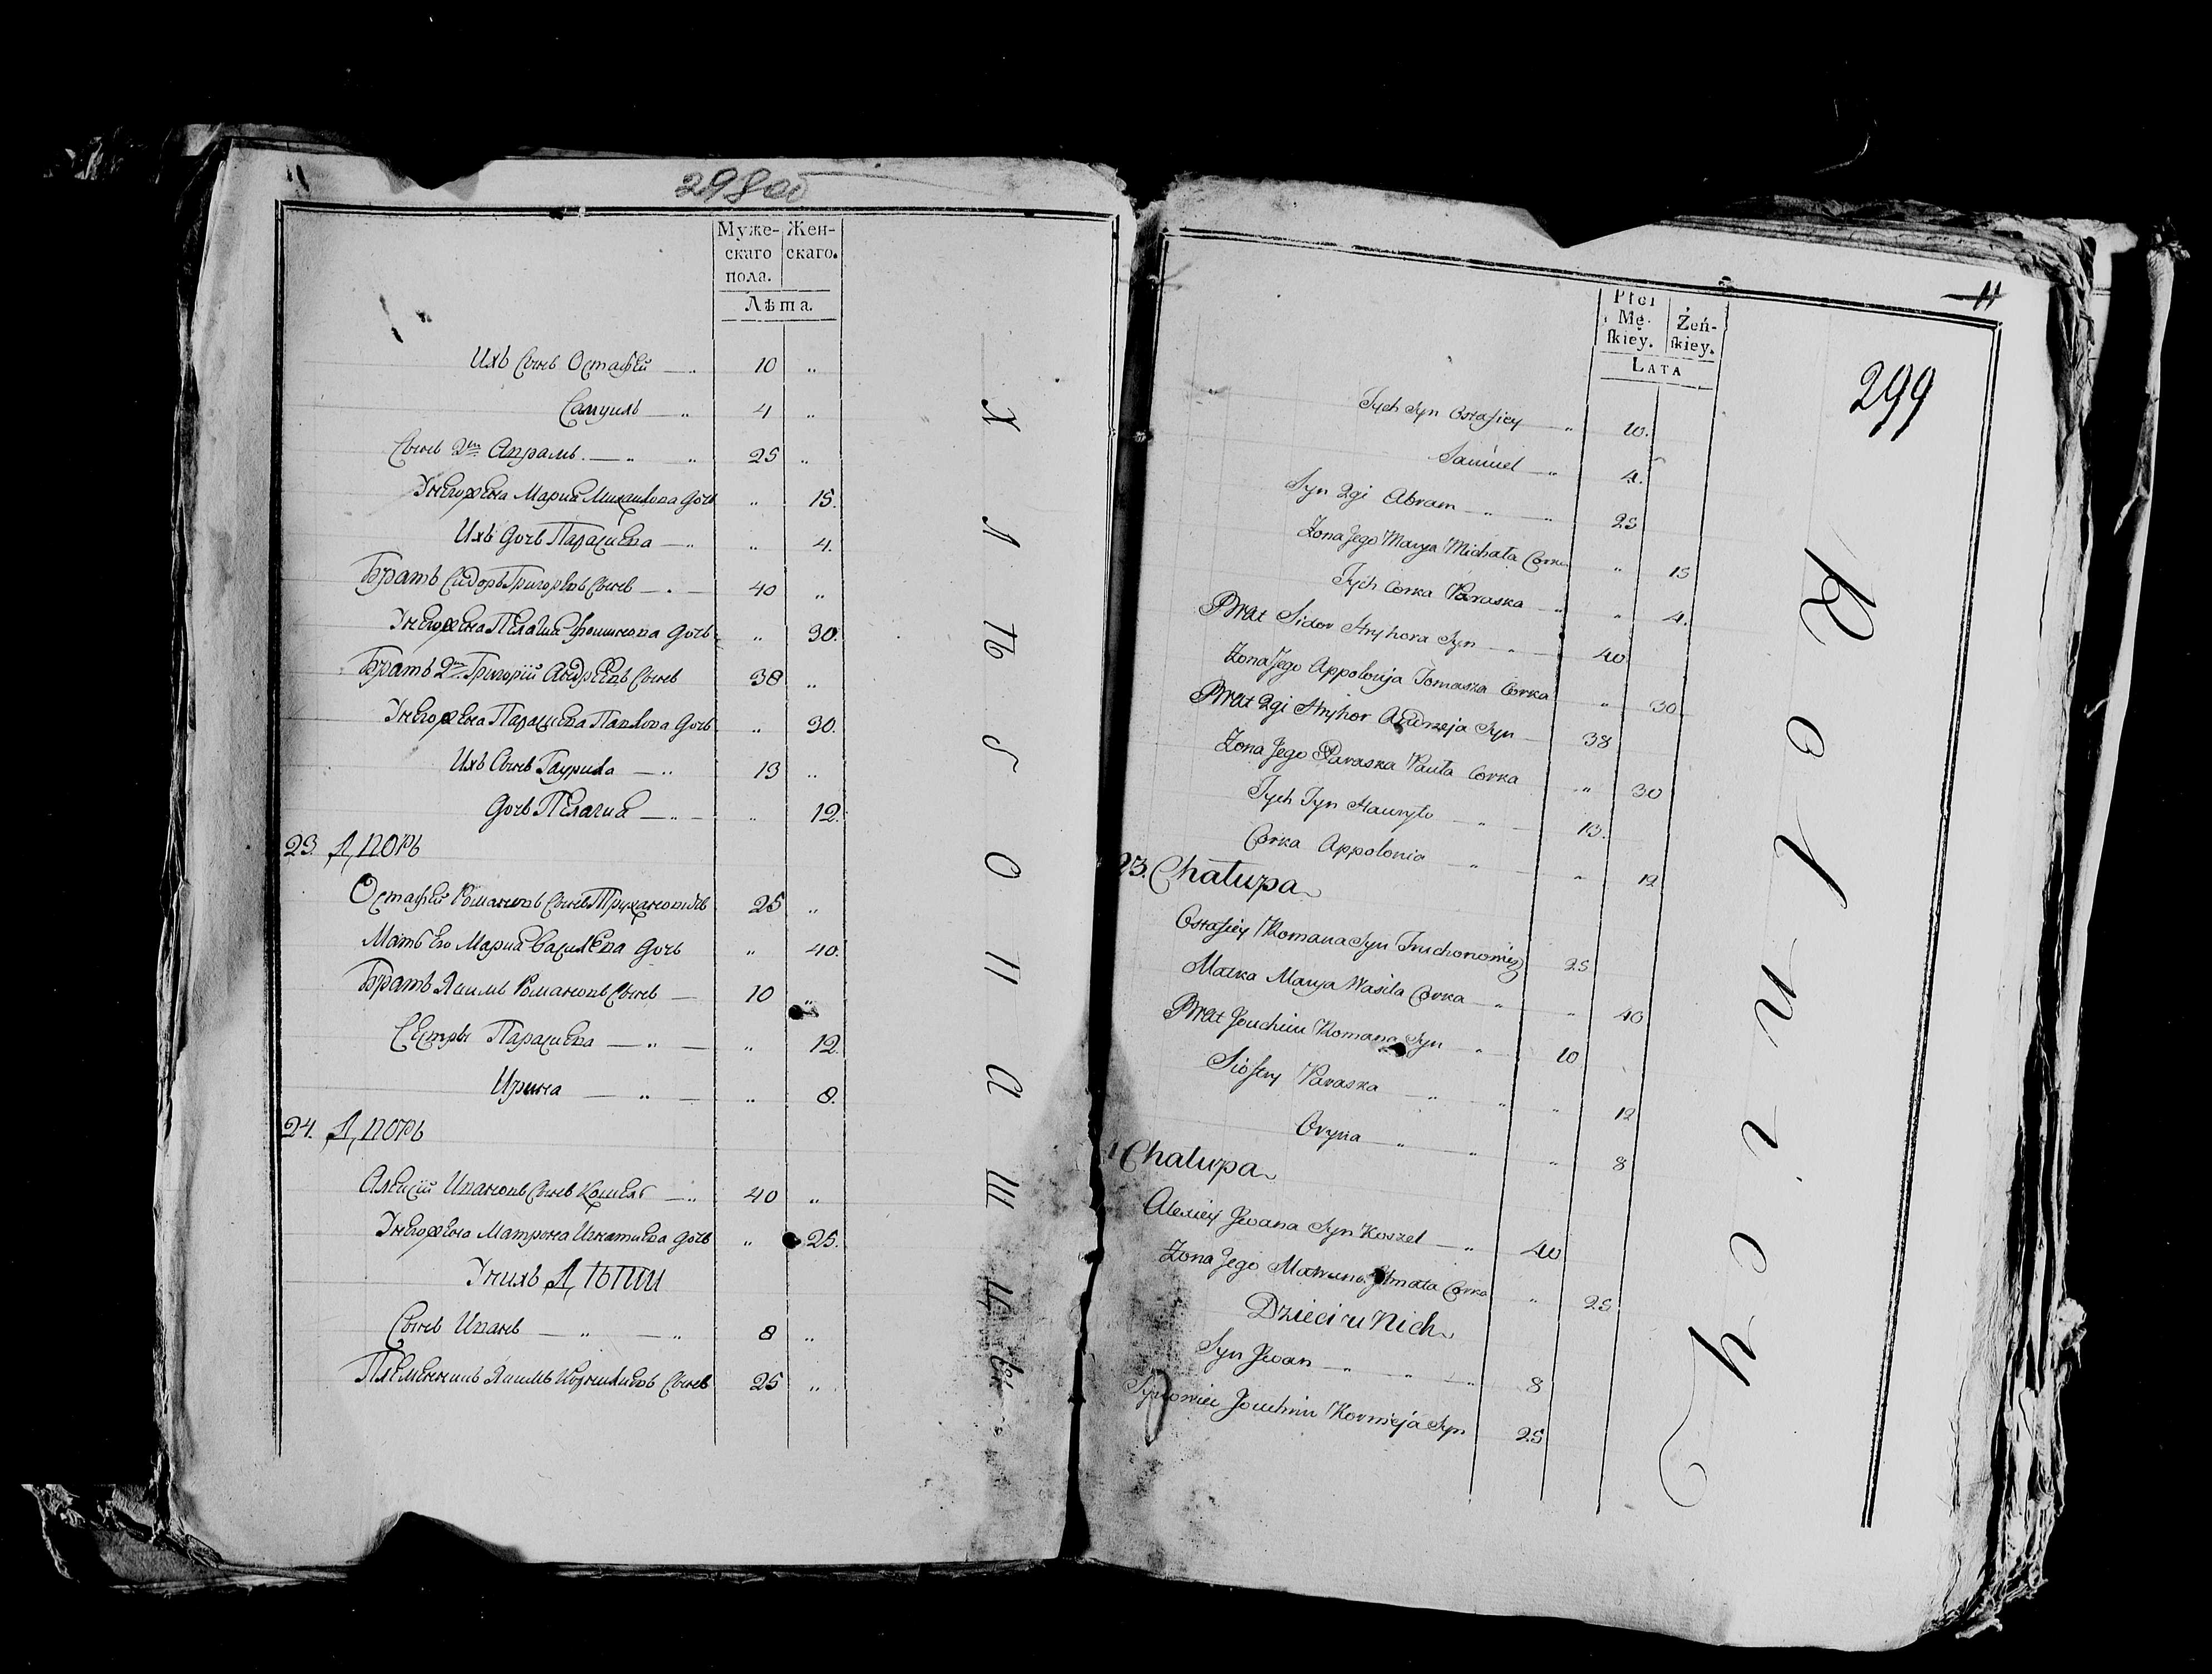 298 об
Муже- Жен-
скаго скаго.
пола.
Лѣта.
Ихъ Сынъ Остафей — „ 10 „
Самуиль — „ 4 „
Сынъ 2й Апрамъ. — „ „ 25 „
У него жена Мария Михаилова дочь „ 15.
Ихъ дочь Парасцева — „ „ 4.
Братъ Сидоръ Григорьевъ Сынъ — „ — 40 „
У него жена Пелагия Фоминова дочь „ 30.
Братъ 2й Григорий Андреевъ Сынъ 38 „
У него жена Парасцева Павлова дочь „ 30.
Ихъ Сынъ Гаурила — „ 13 „
дочь Пелагия — „ — „ 12.
23. Дворъ
Остафей Романовъ Сынъ Трухановичъ 25 „
Мать Его Мария Василева дочь „ 40.
Братъ Якимъ Романовъ Сынъ — 10 „
Сестры Парасцева — „ — „ 12
Ирина — „ — „ 8.
24. Дворъ
Алексий Ивановъ Сынъ Кошель — „ 40 „
У него жена Матрона Игнатиева дочь „ 25.
У нихъ Дѣти
Сынъ Иванъ — „ — „ 8 „
Племенникъ Якимъ Корнилиевъ Сынъ 25 „
Х Л Ѣ Б О П А Ш Ц Ы
11
299
Płci
Mę- Żeń-
skiey. skiey.
LATA
Tych Syn Ostafiey — „ 10.
Samuel — „ 4.
Syn 2gi Abram — „ „ 25
Zona Jego Marya Michała Corka „ 15
Tych Corka Paraska — „ „ 4.
Brat Sidor Hryhora Syn — „ — 40
Zona Jego Appolonija Tomasza Corka „ 30.
Brat 2gi Hryhor Andrzeja Syn — 38
Zona Jego Paraska Pauła Corka „ 30
Tych Syn Hauryło — „ — 13.
Corka Appolonia — „ — „ 12
23. Chałupa
Ostafiey Romana Syn Truchonowicz 25
Matka Marya Wasila Corka — „ „ 40
Brat Jouchim Romana Syn „ 10
Siostry Paraska — „ „ „ 12
Oryna — „ „ „ 8
Chałupa
Alexiey Jwana Syn Koszel — „ 40
Zona Jego Matruna Corka „ 25
Dzieci u Nich
Syn Jwan — „ „ „ 8
Synowiec Jouchim Kornieja Syn 25
R o l n i c y